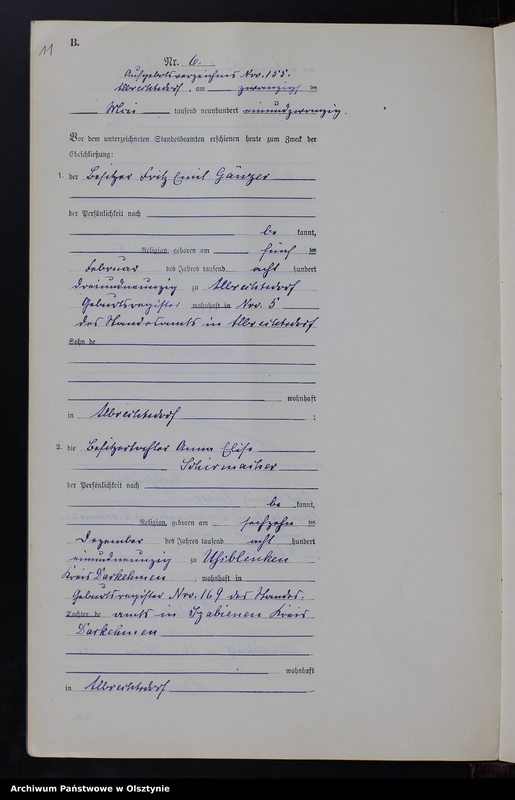 11
B.
Nr. 6.
Aufgebotsverzeichnis Nro. 155.
Albrechtsdorf, am zwanzigsten
Mai tausend neunhundert einundzwanzig.
Vor dem unterzeichneten Standesbeamten erschienen heute zum Zweck der
Eheschließung:
1. der Besitzer Fritz Emil Gänger
der Persönlichkeit nach
be kannt,
Religion, geboren am fünf ten
Februar des Jahres tausend acht hundert
dreiundneunzig zu Albrechtsdorf
Geburtsregister wohnhaft in Nro. 5
des Standesamts in Albrechtsdorf
Sohn de
wohnhaft
in Albrechtsdorf ;
2. die Besitzertochter Anna Elise
Schirmacher
der Persönlichkeit nach
be kannt,
Religion, geboren am sechzehn ten
Dezember des Jahres tausend acht hundert
einundneunzig zu Uszblenken
Kreis Darkehmen, wohnhaft in
Geburtsregister Nro. 169 des Standes-
Tochter de amts in Szabienen Kreis
Darkehmen
wohnhaft
in Albrechtsdorf
Archiwum Państwowe w Olsztynie